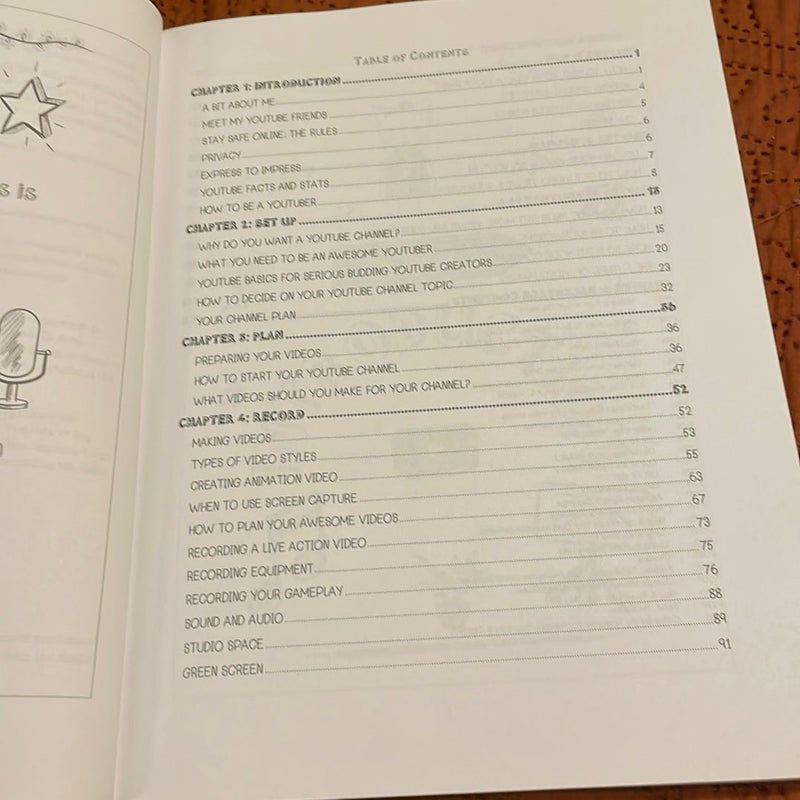 s is
TABLE OF CONTENTS
CHAPTER 1: INTRODUCTION 1
A BIT ABOUT ME 1
MEET MY YOUTUBE FRIENDS 4
STAY SAFE ONLINE: THE RULES 5
PRIVACY 6
EXPRESS TO IMPRESS 6
YOUTUBE FACTS AND STATS 7
HOW TO BE A YOUTUBER 8
CHAPTER 2: SET UP 13
WHY DO YOU WANT A YOUTUBE CHANNEL? 13
WHAT YOU NEED TO BE AN AWESOME YOUTUBER 15
YOUTUBE BASICS FOR SERIOUS BUDDING YOUTUBE CREATORS 20
HOW TO DECIDE ON YOUR YOUTUBE CHANNEL TOPIC 23
YOUR CHANNEL PLAN 32
CHAPTER 3: PLAN 36
PREPARING YOUR VIDEOS 36
HOW TO START YOUR YOUTUBE CHANNEL 36
WHAT VIDEOS SHOULD YOU MAKE FOR YOUR CHANNEL? 47
CHAPTER 4: RECORD 52
MAKING VIDEOS 52
TYPES OF VIDEO STYLES 53
CREATING ANIMATION VIDEO 55
WHEN TO USE SCREEN CAPTURE 63
HOW TO PLAN YOUR AWESOME VIDEOS 67
RECORDING A LIVE ACTION VIDEO 73
RECORDING EQUIPMENT 75
RECORDING YOUR GAMEPLAY 76
SOUND AND AUDIO 88
STUDIO SPACE 89
GREEN SCREEN 91